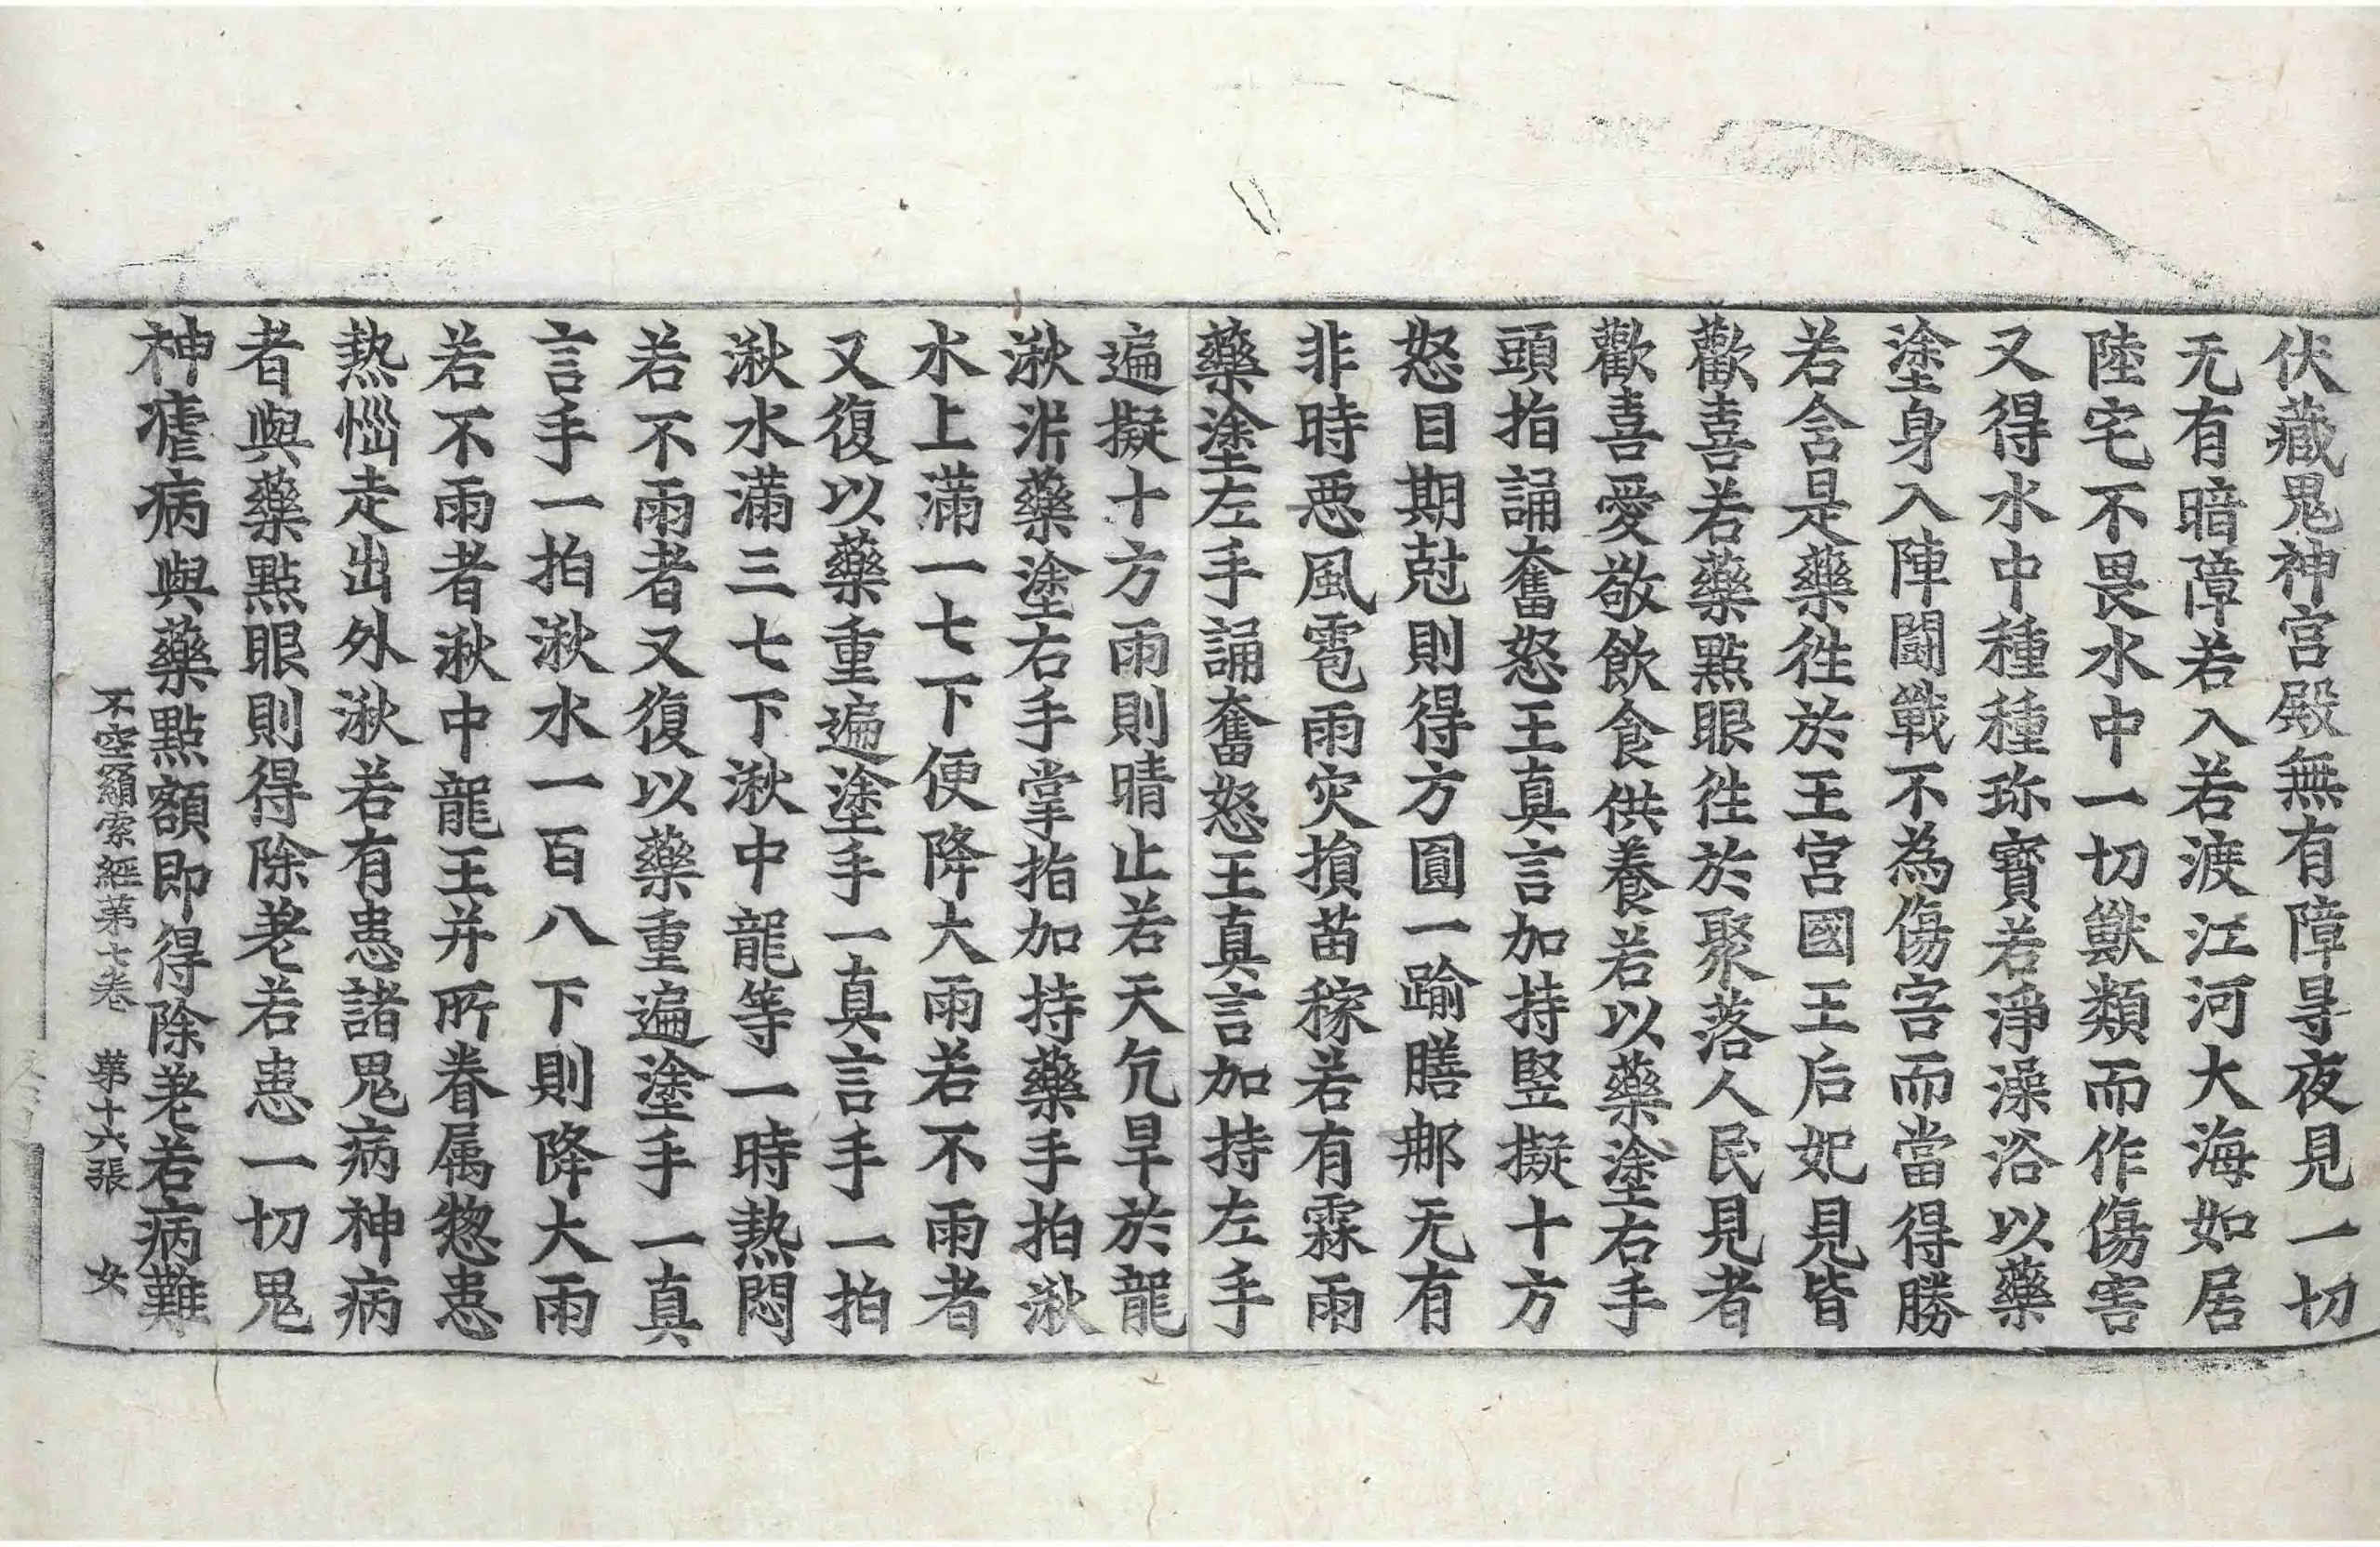 伏藏鬼神宮殿無有障㝵夜見一切
无有暗障若入若渡江河大海如居
陸宅不畏水中一切獸類而作傷害
又得水中種種珎寶若淨澡浴以藥
塗身入陣鬪戰不為傷害而當得勝
若含是藥徃於王宮國王后妃見皆
歡喜若藥點眼徃於聚落人民見者
歡喜愛敬飲食供養若以藥塗右手
頭指誦奮怒王真言加持竪擬十方
怒目期尅則得方圓一踰膳那无有
非時惡風雹雨灾損苗稼若有霖雨
藥塗左手誦奮怒王真言加持左手
遍擬十方雨則晴止若天亢旱於龍
湫泲藥塗右手掌指加持藥手拍湫
水上滿一七下便降大雨若不雨者
又復以藥重遍塗手一真言手一拍
湫水滿三七下湫中龍等一時熱悶
若不雨者又復以藥重遍塗手一真
言手一拍湫水一百八下則降大雨
若不雨者湫中龍王并所眷属惣患
熱惱走出外湫若有患諸鬼病神病
者與藥點眼則得除差若患一切鬼
神瘧病與藥點額即得除差若病難
不空羂索經第七卷 第十六張 女